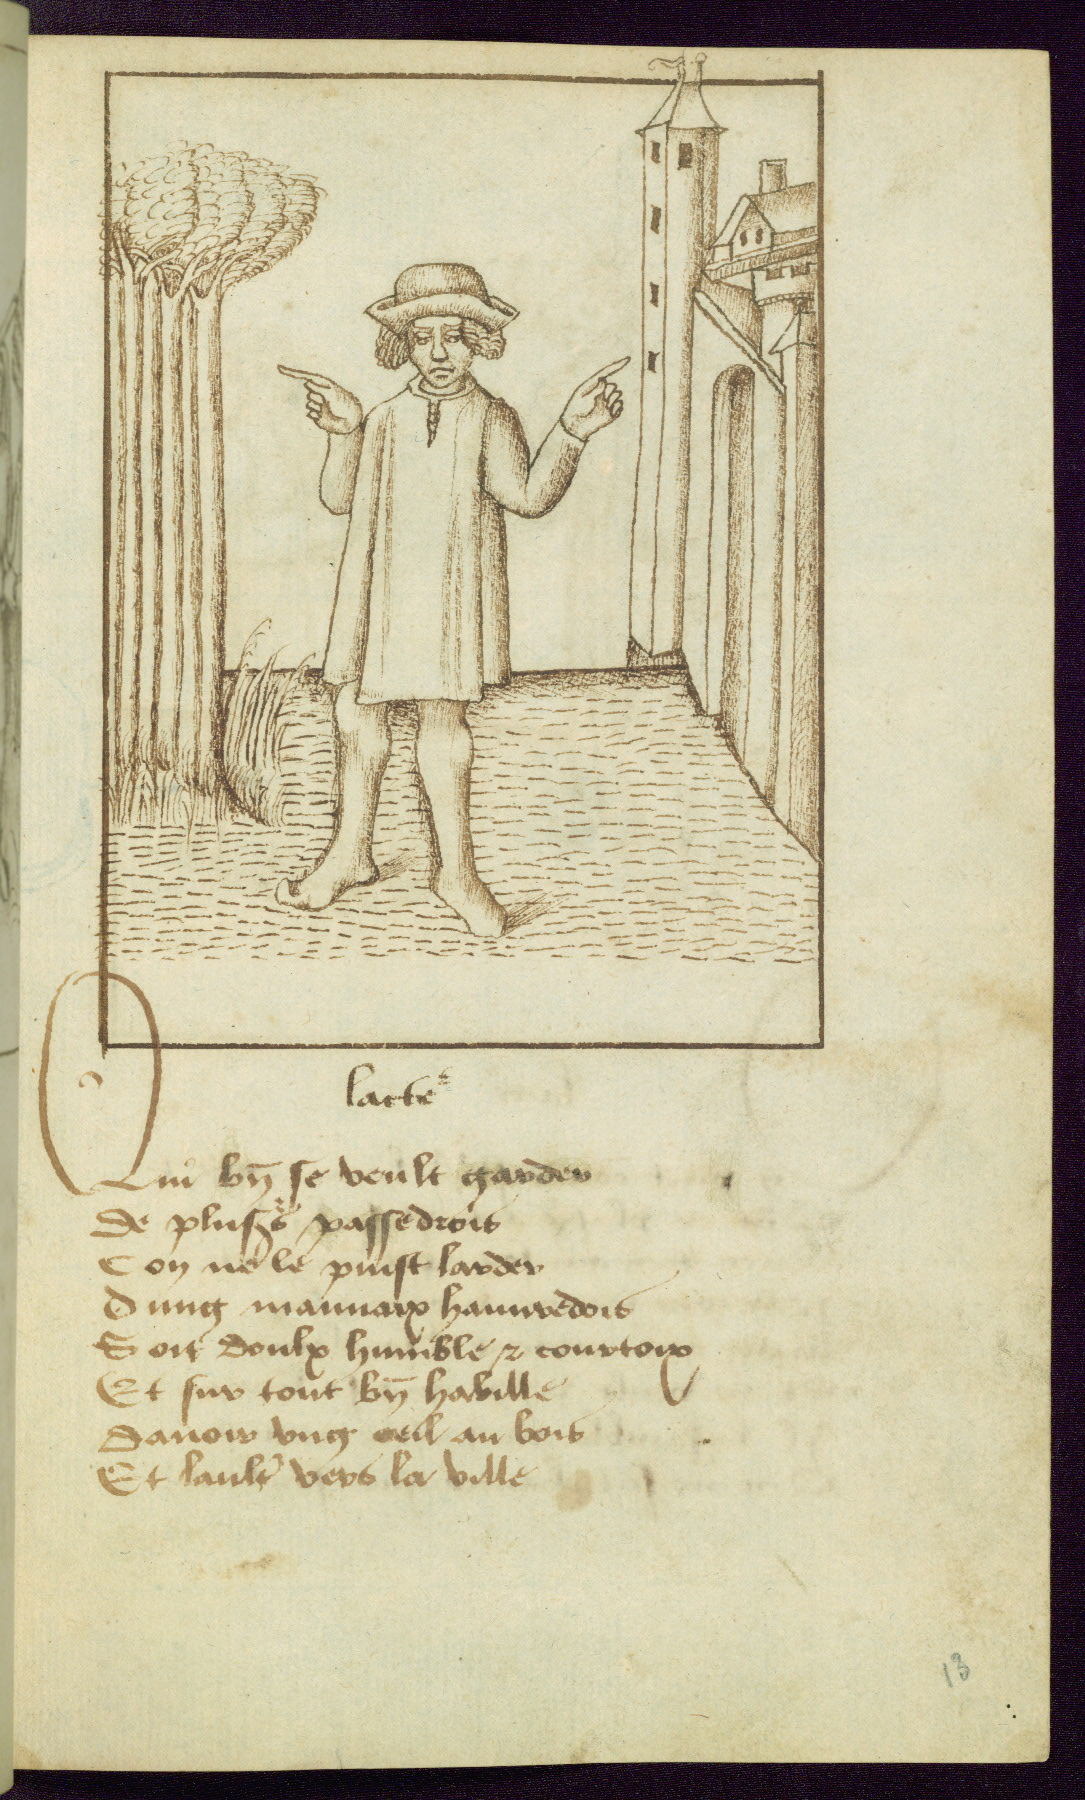 lacte
Qui bn̄ se veult garder
De plusrs passedrois
Con ne le puist larder
Dung mauuaix hauwredois
Soit doulx humble & courtoix
Et sur tout bn̄ habille
Dauoir vng oeil au bois
Et laultr vers la ville
13